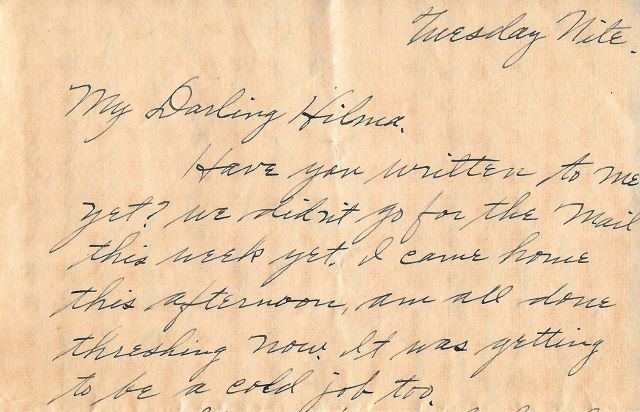 Tuesday Nite.
My Darling Hilma.
Have you written to me
yet? we didn't go for the mail
this week yet. I came home
this afternoon, am all done
threshing now. It was getting
to be a cold job too.